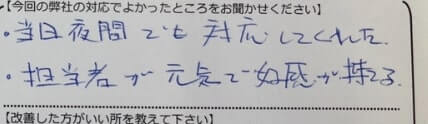 【今回の弊社の対応でよかったところをお聞かせください】
・当日夜間でも対応してくれた.
・担当者が元気で好感が持てる.
【改善した方がいい所を教えて下さい】